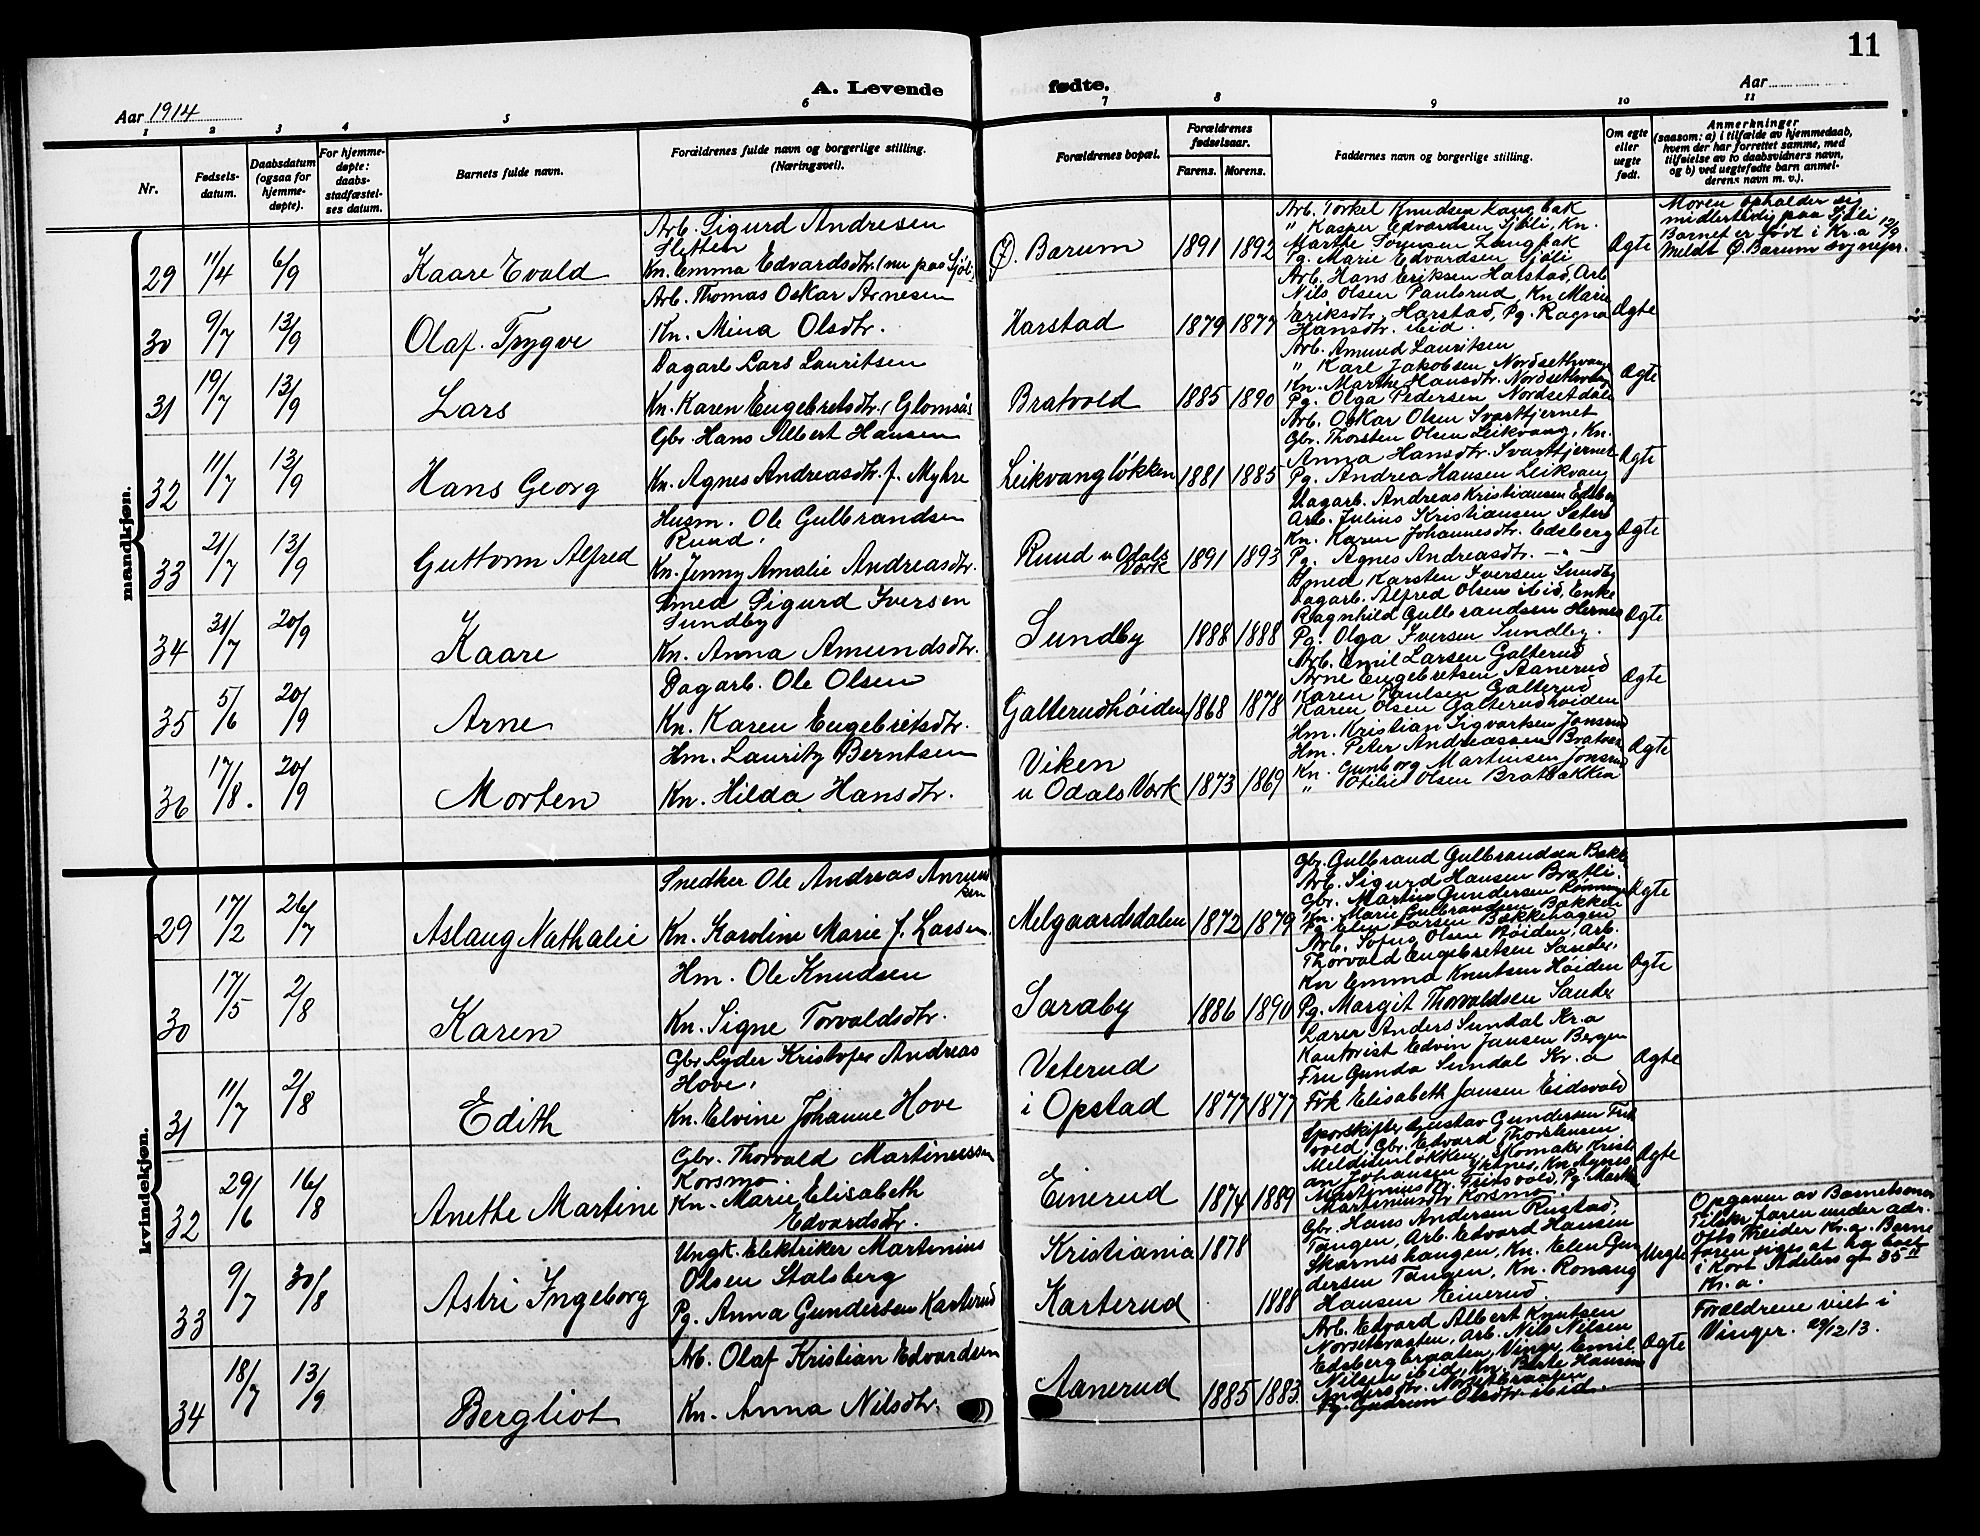 11
A. Levende fødte.
Aar 1914
Aar
1 2 3 4 5 6 7 8 9 10 11
Nr.
Fødsels-
datum.
Daabsdatum
(ogsaa for
hjemme-
døpte).
For hjemme-
døpte:
daabs-
stadfæstel-
ses datum.
Barnets fulde navn.
Forældrenes fulde navn og borgerlige stilling.
(Næringsvei).
Forældrenes bopæl.
Forældrenes
fødselsaar.
Farens. Morens.
Faddernes navn og borgerlige stilling.
Om egte
eller
uegte
født.
Anmerkninger
(saasom: a) i tilfælde av hjemmedaab,
hvem der har forrettet samme, med
tilføielse av to daabsvidners navn,
og b) ved uegtefødte barn anmel-
derens navn m. v.).
mandkjøn.
29 11/4 6/9 Kaare Evald
Arb. Sigurd Andresen
Sletten
Kn. Emma Edvardsdtr. (nu paa Sjøli
Ø. Bærum 1891 1892
Arb. Torkel Knudsen Langbak
" Kasper Edvardsen Sjøli, Kn.
Marthe Sørensen Langbak
Pg. Marie Edvardsen Sjøli
Ægte
Moren opholder sig
midlertidig paa Sjøli
Barnet er født i Kr.a 12/9
Meldt Ø. Bærum sognepr.
30 9/7 13/9 Olaf Trygve
Arb. Thomas Oskar Arnesen
Kn. Mina Olsdtr.
Harstad 1879 1877
Arb. Hans Eriksen Harstad, Arb
Nils Olsen Paulsrud, Kn Marie
Eriksdtr. Harstad, Pg. Ragna
Hansdtr. ibid.
Ægte
31 19/7 13/9 Lars
Dagarb Lars Lauritsen
Kn. Karen Engebretsdtr. (Glomsås
Bratvold 1885 1890
Arb. Amund Lauritsen
" Karl Jakobsen Nordsethvang
Kn. Marthe Hansdtr. Nordsethvang
Pg. Olga Pedersen Nordsetdalen
Ægte
32 11/7 13/9 Hans Georg
Gbr. Hans Albert Hansen
Kn. Agnes Andreasdtr. f. Myhre
Leikvangløkken 1881 1885
Arb. Oskar Olsen Svarttjernet
Gbr. Thorsten Olsen Leikvang, Kn.
Anna Hansdtr. Svarttjernet
Pg. Andrea Hansen Leikvang
Ægte
33 21/7 13/9 Guttorm Alfred
Husm. Ole Gulbrandsen
Ruud.
Kn. Jenny Amalie Andreasdtr.
Ruud u Odals
Værk 1891 1893
Dagarb. Andreas Kristiansen Edsberg
Arb. Julius Kristiansen Sæter
Kn. Karen Johannesdtr. Edsberg
Pg. Agnes Andreasdtr. — " —
Ægte
34 31/7 20/9 Kaare
Smed Sigurd Iversen
Sundby
Kn. Anna Amundsdtr.
Sundby 1888 1888
Smed Karsten Iversen Sundby
Dagarb. Alfred Olsen ibid, Enke
Ragnhild Gulbrandsen Hernes
Pg. Olga Iversen Sundby.
Ægte
35 5/6 20/9 Arne
Dagarb. Ole Olsen
Kn. Karen Engebretsdtr.
Galterudhøiden 1868 1878
Arb. Emil Larsen Galterud
Arne Engebretsen Aanerud
Karen Paulsen Galterud
Karen Olsen Galterudhøiden
Ægte
36 17/8. 20/9 Morten
Hm. Lauritz Berntsen
Kn. Hilda Hansdtr.
Viken
u Odals Værk 1873 1869
Hm. Kristian Sigvartsen Jonsrud
Hm. Peter Andreassen
Kn. Gunborg Martinsen Jonsrud
" Otilie Olsen Bratbakken
Ægte
kvindekjøn.
29 17/2 26/7 Aslaug Nathalie
Snedker Ole Andreas Amund
sen
Kn. Karoline Marie f. Larsen.
Melgaardsdalen 1872 1879
Gbr. Gulbrand Gulbrandsen
Arb. Sigurd Hansen Bratli.
Gbr. Martin Gundersen
Kn. Marie Gulbrandsen Bakken
Pg Elen Larsen Bakkehagen
Ægte
30 17/5 2/8 Karen
Hm. Ole Knudsen
Kn. Signe Torvaldsdtr.
Saraby 1886 1890
Arb. Sofus Olsen Høiden, Arb.
Thorvald Engebretsen Sander,
Kn Emma Knutsen Høiden
Pg. Margit Thorvaldsen Sander
Ægte
31 11/7 2/8 Edith
Gbr Lyder Kristofer Andreas
Hove,
Kn. Elvine Johanne Hove
Veterud
i Opstad 1877 1877
Lærer Anders Sundal Kr.a
Kontorist Edvin Jansen Bergen
Fru Gunda Sundal Kr. a
Frk Elisabeth Jansen Eidsvold
Ægte
32 29/6 16/8 Anette Martine
Gbr. Thorvald Martinussen
Korsmo.
Kn. Marie Elisabeth
Edvardsdtr.
Einerud 1874 1889
Sporskifter Gustav Gundersen Frit
vold, Gbr. Edvard Thorstensen
Meldisenløkken, Skomaker Kristi
an Johansen Ystnes, Kn. Agnes
Martinius dtr. Fritsvold, Pg. Marth
Martiniusdtr Korsmo.
Ægte
33 9/7 30/8 Astri Ingeborg
Ungk. Elektriker Martinius
Olsen Stalsberg
Pg. Anna Gundersen Karterud
Kristiania 1878
Karterud 1888
Gbr. Hans Andersen Rustad,
Tangen, Arb. Edvard Hansen
Skarneshaugen, Kn. Elen Gun
dersen Tangen, Kn. Ronaug
Hansen Einerud.
Uegte
Opgaven av Barnets mor
Tilskr. faren under adr.
Otto Kreider Kr.a. Barne
faren siges at ha boet
i Kort Adelers gt 35 II
Kr.a.
34 18/7 13/9 Bergliot
Arb. Olaf Kristian Edvardsen
Kn. Anna Nilsdtr.
Aanerud 1885 1883
Arb. Edvard Albert Knutsen
Norsetbraaten, Arb. Nils Nilsen
Edsbergbraaten, Vinge, Emil
Nilsen ibid, Kn. Berte Hansen
Andersdtr. Norsetbraaten
Pg. Gudrun Olsdtr. ibid.
Ægte
Forældrene viet i
Vinger. 29/12 13.